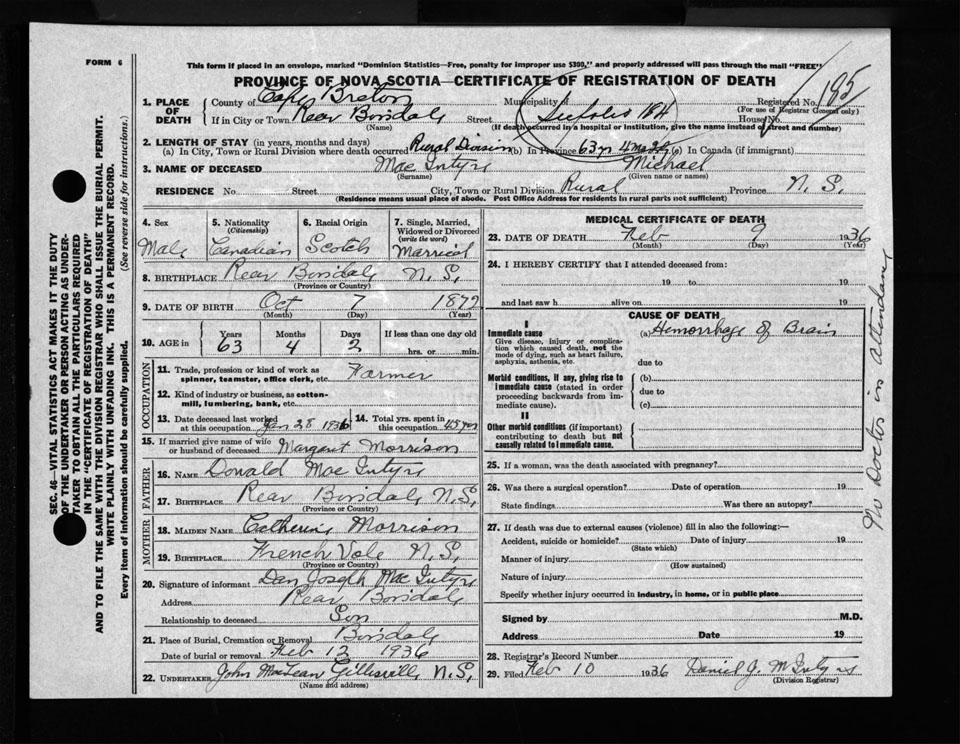 FORM 6
This form if placed in an envelope, marked "Dominion Statistics—Free, penalty for improper use $300," and properly addressed will pass through the mail "FREE"
PROVINCE OF NOVA SCOTIA—CERTIFICATE OF REGISTRATION OF DEATH
195
1. PLACE OF DEATH County of Cape Breton Municipality of Registered No.
(For use of Registrar General only)
If in City or Town Rear Boisdale Street See folio 184 House No.
(Name) (If death occurred in a hospital or institution, give the name instead of street and number)
2. LENGTH OF STAY (in years, months and days)
(a) In City, Town or Rural Division where death occurred Rural Division (b) In Province 63 yr 4 ms 2d (c) In Canada (if immigrant)
3. NAME OF DECEASED Mac Intyre Michael
(Surname) (Given name or names)
RESIDENCE No. Street City, Town or Rural Division Rural Province N. S.
(Residence means usual place of abode. Post Office Address for residents in rural parts not sufficient)
4. Sex Male
5. Nationality (Citizenship) Canadian
6. Racial Origin Scotch
7. Single, Married, Widowed or Divorced (write the word) Married
8. BIRTHPLACE Rear Boisdale N. S.
(Province or Country)
9. DATE OF BIRTH Oct 7 1872
(Month) (Day) (Year)
10. AGE Years 63 Months 4 Days 2 If less than one day old
hrs. or min.
OCCUPATION
11. Trade, profession or kind of work as spinner, teamster, office clerk, etc. Farmer
12. Kind of industry or business, as cotton-mill, lumbering, bank, etc.
13. Date deceased last worked at this occupation Jan 28 1936
14. Total yrs. spent in this occupation 45 yrs
15. If married give name of wife or husband of deceased Margaret Morrison
FATHER
16. NAME Donald Mac Intyre
17. BIRTHPLACE Rear Boisdale N. S.
(Province or Country)
MOTHER
18. MAIDEN NAME Catherine Morrison
19. BIRTHPLACE French Vale N. S.
(Province or Country)
20. Signature of informant Dan Joseph Mac Intyre
Address Rear Boisdale
Relationship to deceased Son
21. Place of Burial, Cremation or Removal Boisdale
Date of burial or removal Feb 12 1936
22. UNDERTAKER John MacLean Gillisville N. S.
(Name and address)
MEDICAL CERTIFICATE OF DEATH
23. DATE OF DEATH Feb 9 1936
(Month) (Day) (Year)
24. I HEREBY CERTIFY that I attended deceased from:
19 to 19
and last saw h alive on 19
CAUSE OF DEATH
I
Immediate cause (a) Hemorrhage of Brain
Give disease, injury or complication which caused death, not the mode of dying, such as heart failure, asphyxia, asthenia, etc.
due to
Morbid conditions, if any, giving rise to immediate cause (stated in order proceeding backwards from immediate cause).
(b)
due to
(c)
II
Other morbid conditions (if important) contributing to death but not causally related to immediate cause.
No Doctor in attendance
25. If a woman, was the death associated with pregnancy?
26. Was there a surgical operation? Date of operation 19
State findings Was there an autopsy?
27. If death was due to external causes (violence) fill in also the following:—
Accident, suicide or homicide? Date of injury 19
(State which)
Manner of injury
(How sustained)
Nature of injury
Specify whether injury occurred in industry, in home, or in public place
Signed by M.D.
Address Date 19
28. Registrar's Record Number
29. Filed Feb 10 1936 Daniel J. McIntyre
(Division Registrar)
SEC. 46—VITAL STATISTICS ACT MAKES IT THE DUTY
OF THE UNDERTAKER OR PERSON ACTING AS UNDER-
TAKER TO OBTAIN ALL THE PARTICULARS REQUIRED
IN THE "CERTIFICATE OF REGISTRATION OF DEATH"
AND TO FILE THE SAME WITH THE DIVISION REGISTRAR WHO SHALL ISSUE THE BURIAL PERMIT.
WRITE PLAINLY WITH UNFADING INK. THIS IS A PERMANENT RECORD.
Every item of information should be carefully supplied. (See reverse side for instructions.)